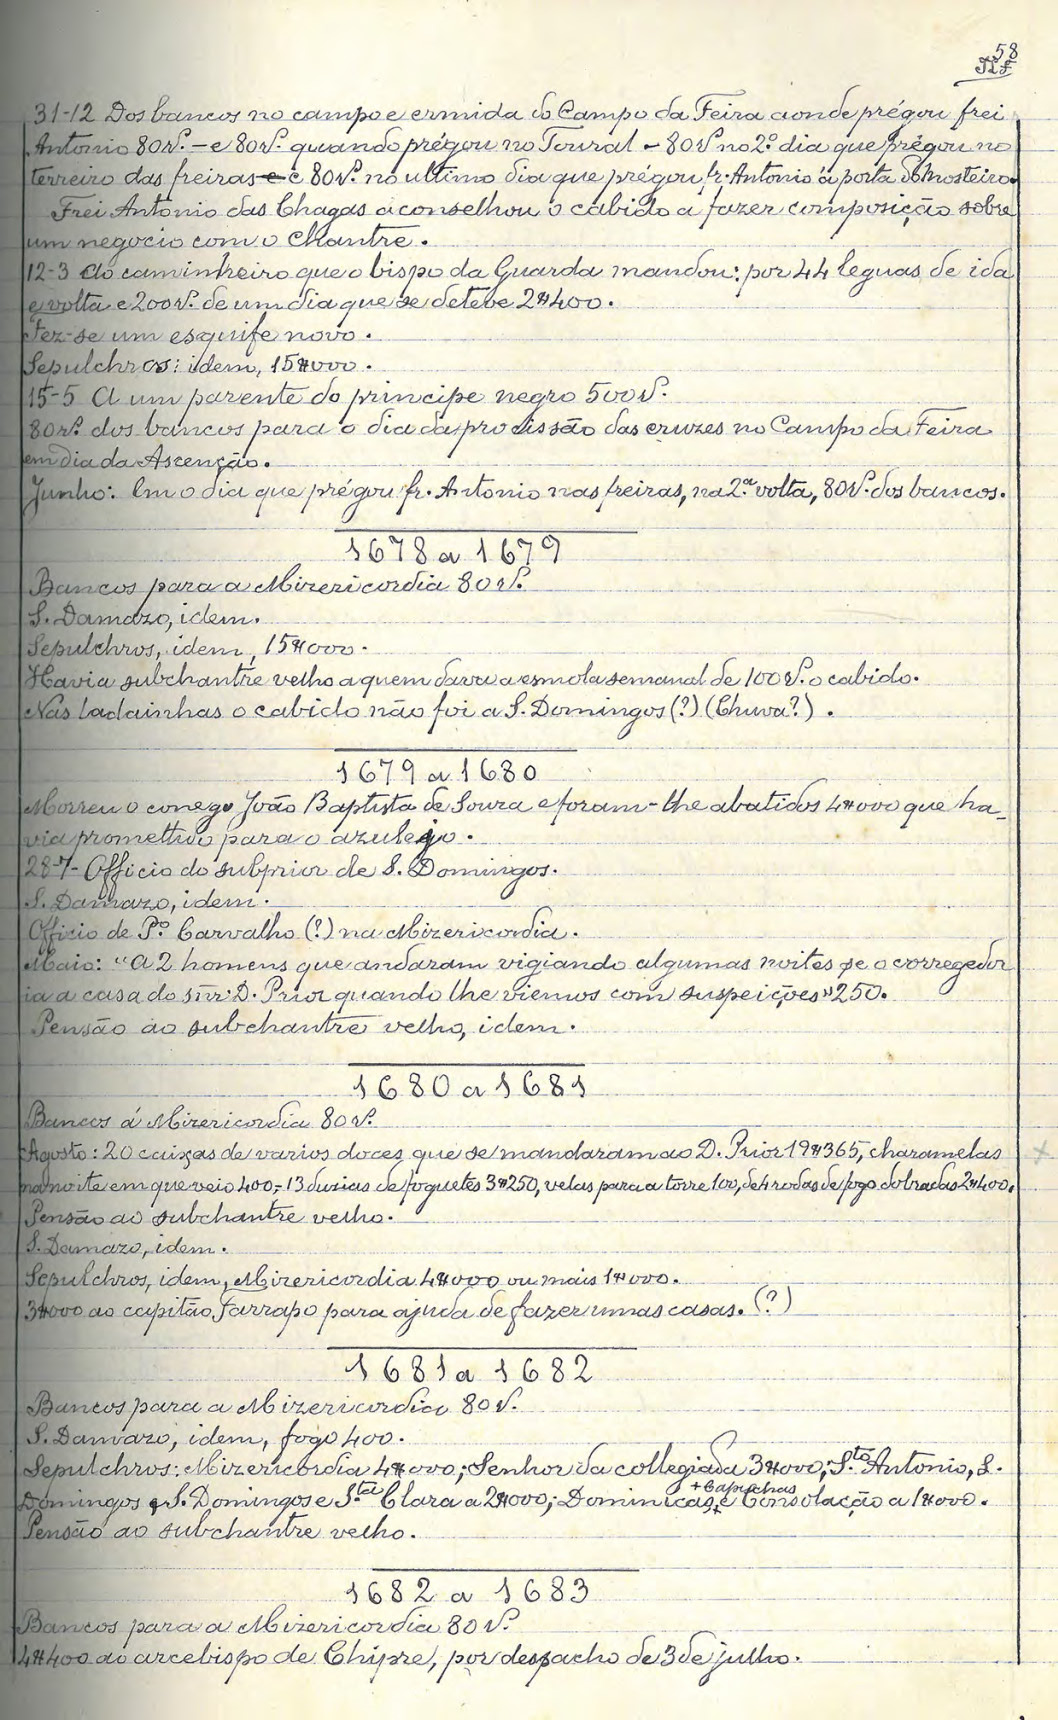 58
31-12 Dos bancos no campo e ermida do Campo da Feira aonde prégou frei
Antonio 80 rs. - e 80 rs. quando prégou no Toural - 80 rs no 2º dia que prégou no
terreiro das freiras e 80 rs. no ultimo dia que prégou fr. Antonio á porta do Mosteiro.
Frei Antonio das Chagas aconselhou o cabido a fazer composição sobre
um negocio com o Chantre.
12-3 Ao caminheiro que o bispo da Guarda mandou: por 44 leguas de ida
e volta e 200 rs. de um dia que se deteve 2$400.
Fez-se um esquife novo.
Sepulchros: idem, 15$000.
15-5 A um parente do principe negro 500 rs.
80 rs. dos bancos para o dia da procissão das cruzes no Campo da Feira
em dia da Ascenção.
Junho: Em o dia que prégou fr. Antonio nas freiras, na 2.ª volta, 80 rs. dos bancos.
1678 a 1679
Bancos para a Mizericordia 80 rs.
S. Damazo, idem.
Sepulchros, idem, 15$000.
Havia subchantre velho a quem dava a esmola semanal de 100 rs. o cabido.
Nas ladainhas o cabido não foi a S. Domingos (?) (Chuva?).
1679 a 1680
Morreu o conego João Baptista de Souza e foram-lhe abatidos 4$000 que ha-
via promettido para o azulejo.
28-7- Officio do subprior de S. Domingos.
S. Damazo, idem.
Officio de Pº Carvalho (?) na Mizericordia.
Maio: "A 2 homens que andaram vigiando algumas noites se o corregedor
ia a casa do snr. D. Prior quando lhe viemos com suspeições" 250.
Pensão ao subchantre velho, idem.
1680 a 1681
Bancos á Mizericordia 80 rs.
Agosto: 20 caixas de varios doces que se mandaram ao D. Prior 19$365, charamelas
na noite em que veio 400,- 13 duzias de foguetes 3$250, velas para a torre 100, de 4 rodas de fogo dobradas 2$400.
Pensão ao subchantre velho.
S. Damazo, idem.
Sepulchros, idem, Mizericordia 4$000 ou mais 1$000.
3$000 ao capitão Farrapo para ajuda de fazer umas casas. (?)
1681 a 1682
Bancos para a Mizericordia 80 rs.
S. Damazo, idem, fogo 400.
Sepulchros: Mizericordia 4$000; Senhor da collegiada 3$000; S.to Antonio, S.
+ Capuchas
Domingos e S. Domingos e S.ta Clara a 2$000; Dominicas + e Consolação a 1$000.
Pensão ao subchantre velho.
1682 a 1683
Bancos para a Mizericordia 80 rs.
4$400 ao arcebispo de Chipre, por despacho de 3 de julho.